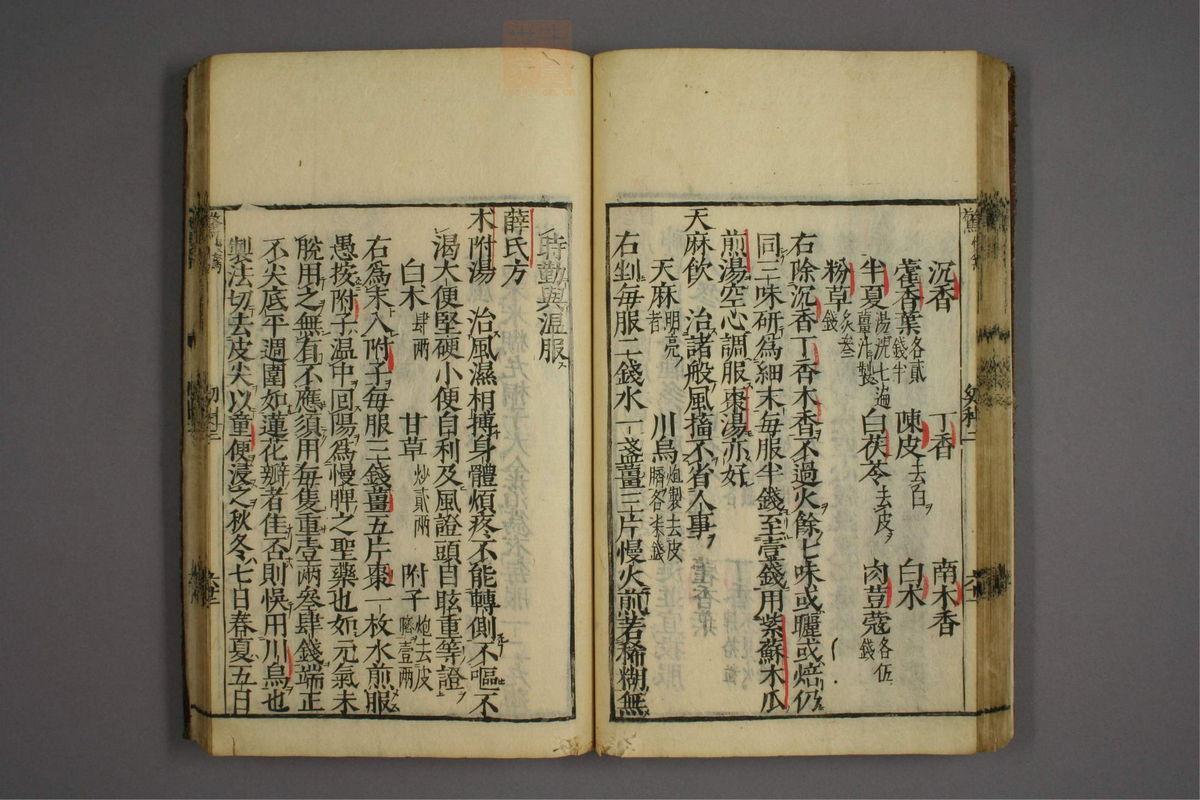 沉香 丁香 南木香
藿香葉各貳錢半 陳皮去白 白朮
半夏湯洗七遍薑汁製 白茯苓去皮 肉豆蔻各伍錢
粉草炙叁錢
右除沉香丁香木香不過火餘七味或曬或焙仍
同三味研為細末每服半錢至壹錢用紫蘇木瓜
煎湯空心調服棗湯亦好
天麻飲 治諸般風搐不省人事
天麻明亮者 川烏炮製去皮臍各柒錢
右剉每服二錢水一盞薑三片慢火煎若稀糊無
時勸與溫服
薛氏方
朮附湯 治風濕相搏身體煩疼不能轉側不嘔不
渴大便堅硬小便自利及風證頭目眩重等證
白朮肆兩 甘草炒貳兩 附子炮去皮臍壹兩
右為末入附子每服三錢薑五片棗一枚水煎服
愚按附子溫中回陽為慢脾之聖藥也如元氣未
脫用之無有不應須用每隻重壹兩叁肆錢端正
不尖底平週圍如蓮花瓣者佳否則悞用川烏也
製法切去皮尖以童便浸之秋冬七日春夏五日